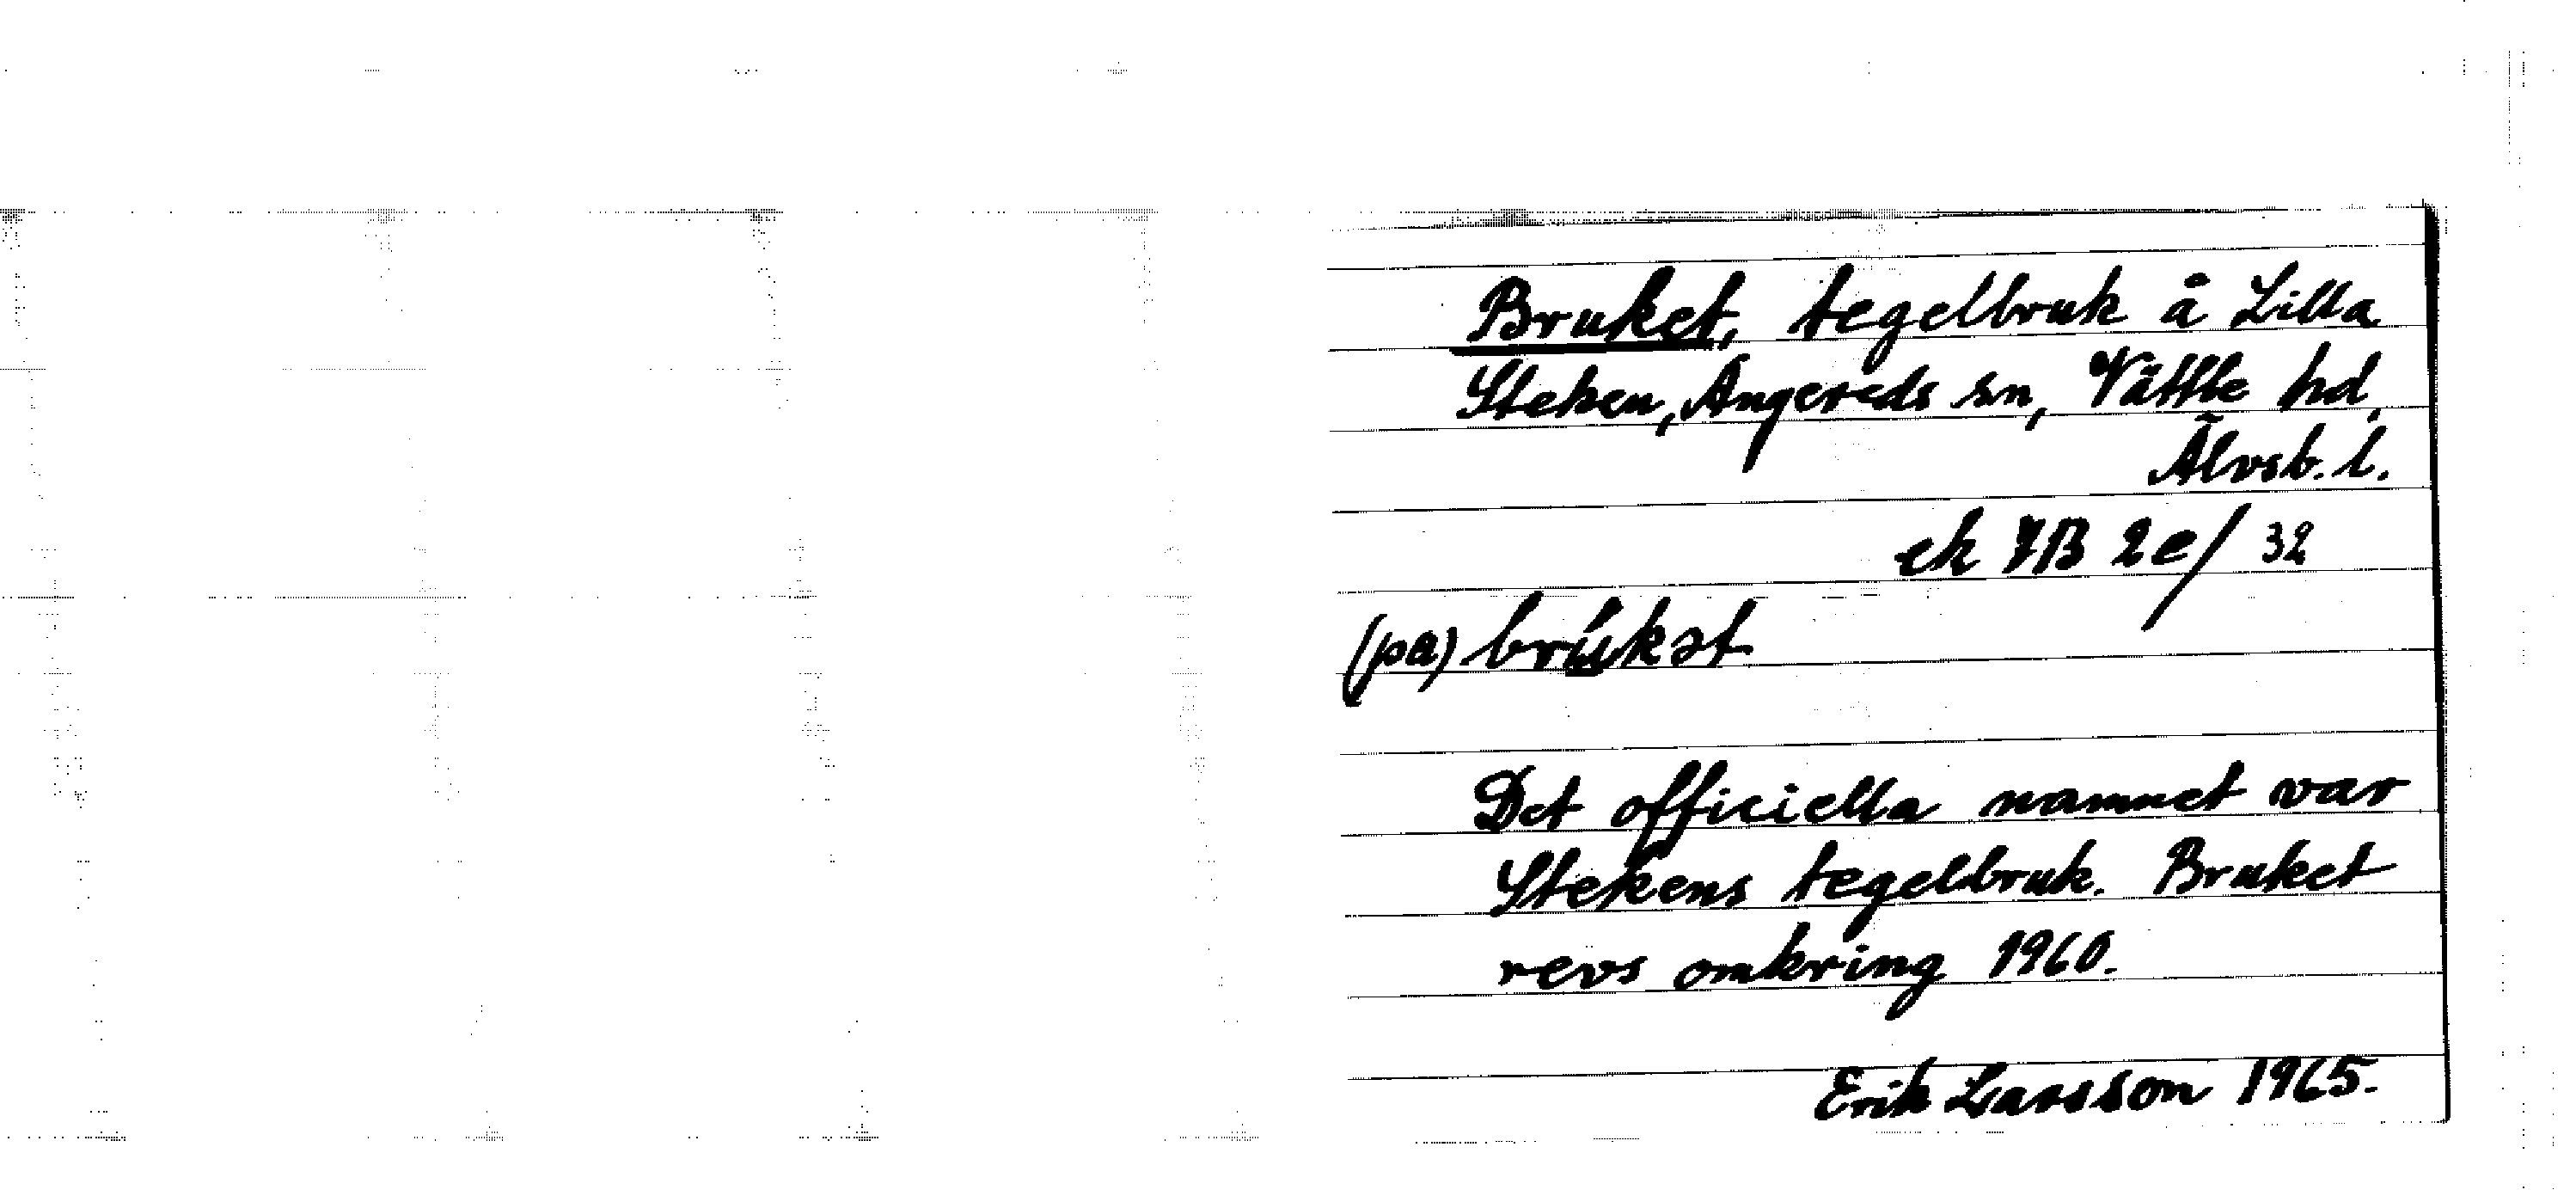 Bruket, tegelbruk å Lilla
Steken, Angereds sn, Vättle hd,
Älvsb. l.
ek 7B 2e/ 32
(på) brúkət
Det officiella namnet var
Stekens tegelbruk. Bruket
revs omkring 1960.
Erik Larsson 1965.